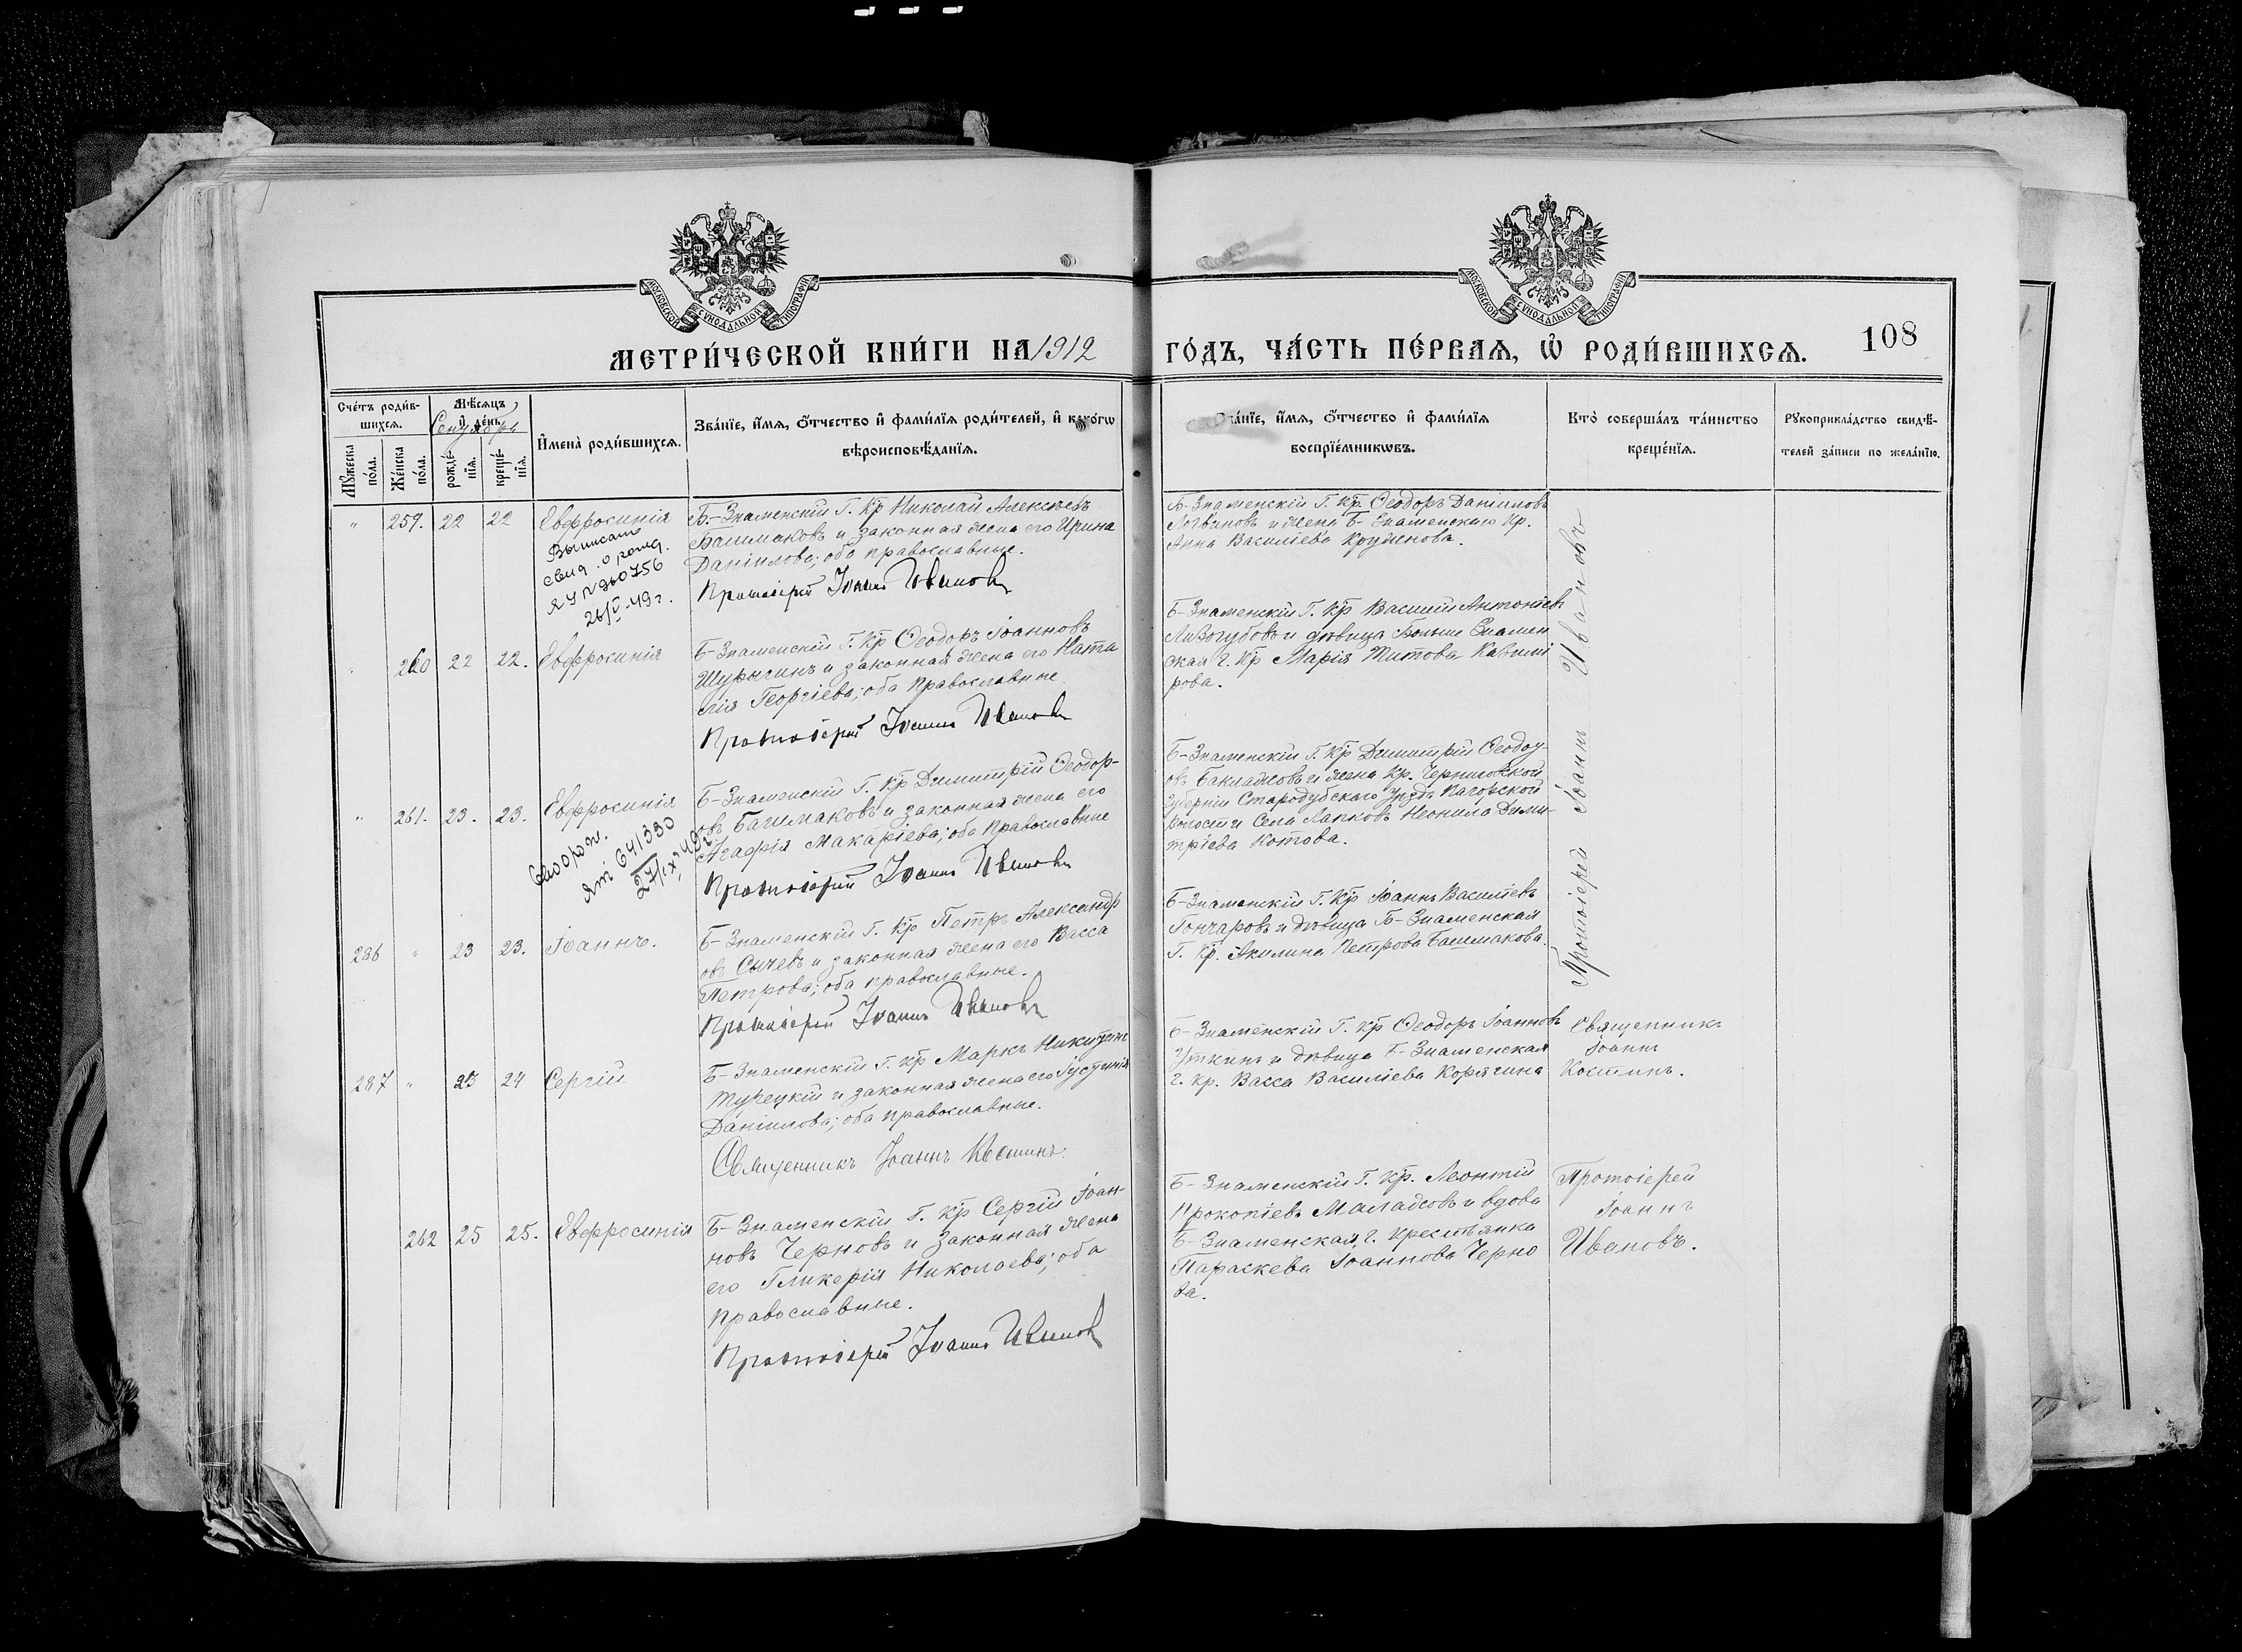 МОСКОВСКОЙ СУНОДАЛЬНОЙ ТИПОГРАФІИ
МОСКОВСКОЙ СУНОДАЛЬНОЙ ТИПОГРАФІИ
МЕТРИ́ЧЕСКОЙ КНИ́ГИ НА 1912 ГО́ДЪ, ЧА́СТЬ ПЕ́РВАЯ, Ѡ҆ РОДИ́ВШИХСѦ. 108
Сче́тъ роди́в-
шихсѧ.
Мꙋ́жеска
по́ла.
Же́нска
по́ла.
Мѣ́сѧцъ
и҆ де́нь.
Сентябрь
рожде́-
нїѧ.
креще́-
нїѧ.
И҆мена̀ роди́вшихсѧ.
Зва́нїе, и҆́мѧ, ѻ҆́тчество и҆ фами́лїѧ роди́телей, и҆ како́гѡ
вѣроисповѣ́данїѧ.
Зва́нїе, и҆́мѧ, ѻ҆́тчество и҆ фами́лїѧ
воспрїе́мникѡвъ.
Кто̀ соверша́лъ та́инство
креще́нїѧ.
Рꙋкоприкла́дство свидѣ́-
телей за́писи по жела́нїю.
" 259. 22 22 Евфросинія
Выписано
свид. о рожд.
26/V-49 г.
Б.-Знаменскій Г. Кр Николай Алексѣевъ
Башмаковъ и законная жена его Ирина
Даніилова; оба православные.
Протоіерей Іоаннъ Ивановъ
Б-Знаменскій Г. Кр Ѳеодоръ Даніиловъ
Логвиновъ и жена Б-Знаменскаго Кр.
Анна Василіева Круженова.
" 260 22 22. Евфросинія
Б-Знаменскій Г. Кр Ѳеодоръ Іоанновъ
Шурыгинъ и законная жена его Ната
лія Георгіева; оба православные.
Протоіерей Іоаннъ Ивановъ
Б-Знаменскій Г. Кр Василій Антоніевъ
Лизогубовъ и дѣвица Больше Знамен
ская г. Кр Марія Титова Кавуні
рова.
" 261. 23. 23. Евфросинія
641330
27/IX 49г
Б-Знаменскій Г. Кр Димитрій Ѳеодор-
овъ Башмаковъ и законная жена его
Агафія Макаріева; оба православные
Протоіерей Іоаннъ Ивановъ
Б-Знаменскій Г. Кр Димитрій Ѳеодор-
овъ Баклажовъ и жена Кр. Черниговской
Губерніи Стародубскаго Уѣзда
Волости Села Лапковъ Неонила Дими-
тріева Котова.
286 " 23 23. Іоаннъ.
Б-Знаменскій Г. Кр Петръ Александр
овъ Сычевъ и законная жена его Васса
Петрова; оба православные.
Протоіерей Іоаннъ Ивановъ
Б-Знаменскій Г. Кр Іоаннъ Василіевъ
Гончаровъ и дѣвица Б-Знаменская
Г. Кр. Акилина Петрова Башмакова.
Протоіерей Іоаннъ Ивановъ
287 " 23 24 Сергій
Б-Знаменскій Г. Кр Маркъ Никитинъ
Турецкій и законная жена его Іустинія
Даніилова; оба православные.
Священникъ Іоаннъ Костинъ.
Б-Знаменскій Г. Кр Ѳеодоръ Іоанновъ
Уткинъ и дѣвица Б-Знаменская
г. Кр. Васса Василіева Корягина
Священникъ
Іоаннъ
Костинъ.
262 25 25. Евфросинія
Б-Знаменскій Г. Кр Сергій Іоан-
новъ Черновъ и законная жена
его Гликерія Николаева; оба
православные.
Протоіерей Іоаннъ Ивановъ
Б-Знаменскій Г. Кр. Леонтій
Прокопіевъ Маладсовъ и вдова
Б-Знаменская, г. крестьянка
Параскева Іоаннова Черно
ва.
Протоіерей
Іоаннъ
Ивановъ.